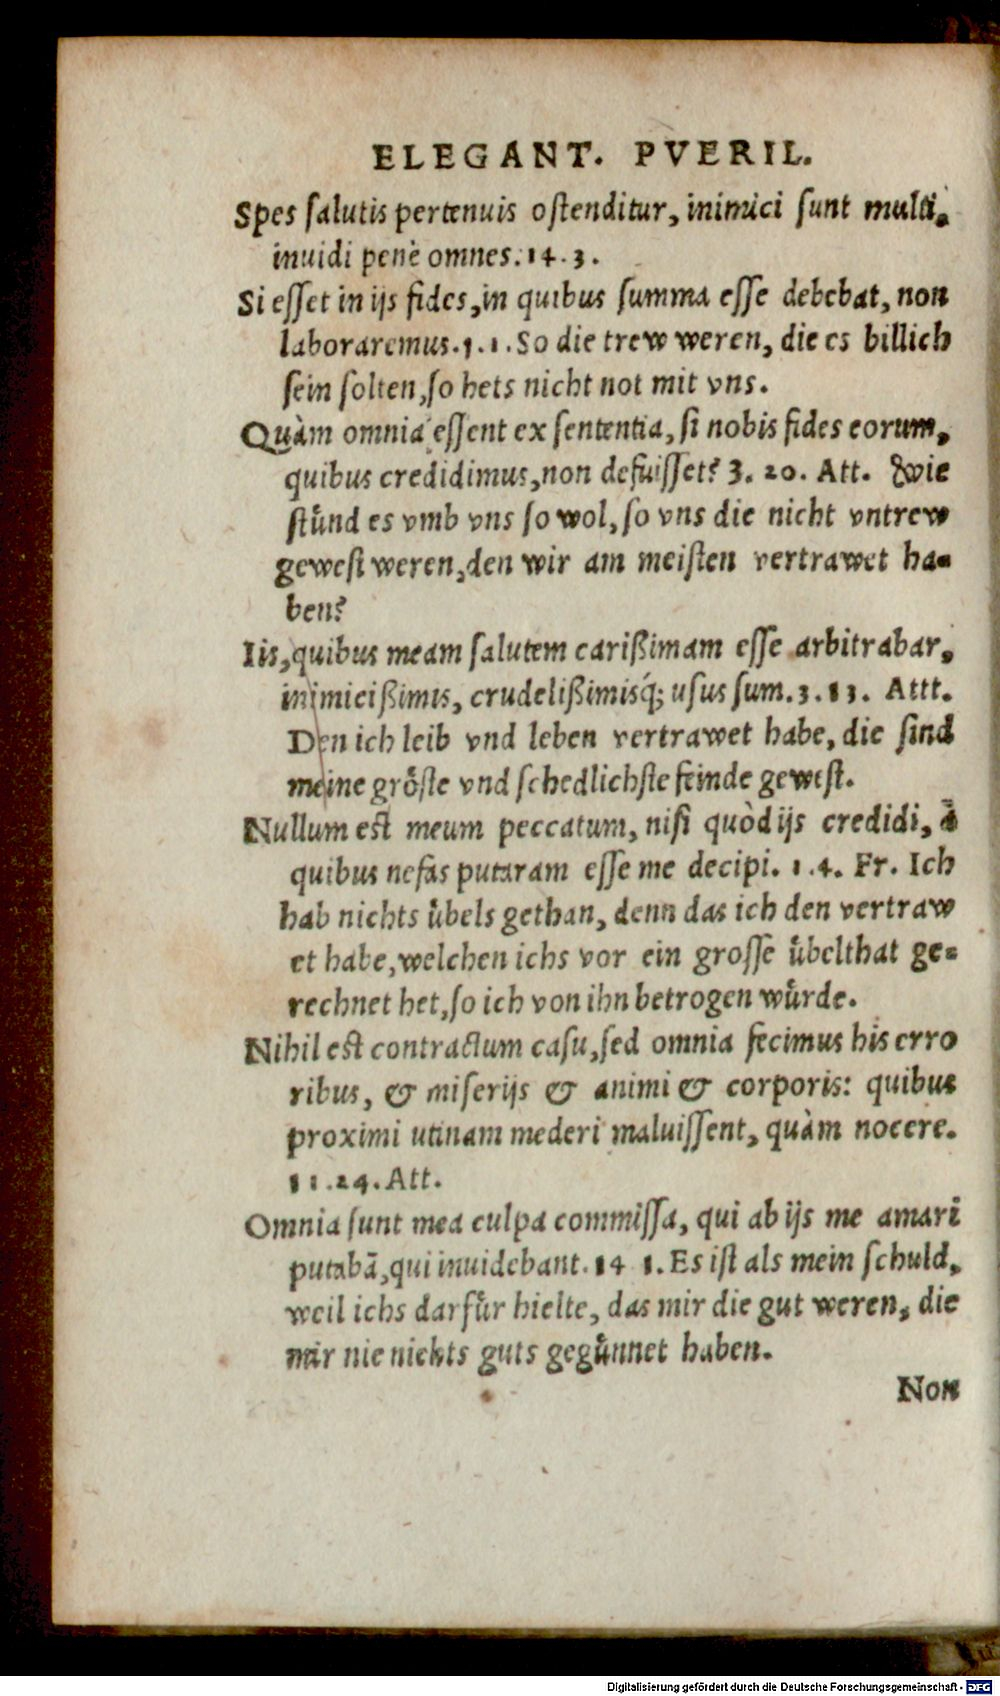 ELEGANT. PVERIL.
Spes ſalutis pertenuis oſtenditur, inimici ſunt multi,
inuidi penè omnes. 14. 3.
Si eſſet in ijs fides, in quibus ſumma eſſe debebat, non
laboraremus. 1. 1. So die trew weren, die es billich
ſein ſolten, ſo hets nicht not mit vns.
Quàm omnia eſſent ex ſententia, ſi nobis fides eorum,
quibus credidimus, non defuiſſet? 3. 20. Att. Wie
ſtuͤnd es vmb vns ſo wol, ſo vns die nicht vntrew
geweſt weren, den wir am meiſten vertrawet ha-
ben?
Iis, quibus meam ſalutem carißimam eſſe arbitrabar,
inimicißimis, crudelißimisq́; uſus ſum. 3. 13. Attt.
Den ich leib vnd leben vertrawet habe, die ſind
meine groͤſte vnd ſchedlichſte feinde geweſt.
Nullum eſt meum peccatum, niſi quòd ijs credidi, à
quibus nefas putaram eſſe me decipi. 1. 4. Fr. Ich
hab nichts uͤbels gethan, denn das ich den vertraw
et habe, welchen ichs vor ein groſſe uͤbelthat ge-
rechnet het, ſo ich von ihn betrogen wuͤrde.
Nihil eſt contractum caſu, ſed omnia fecimus his erro
ribus, & miſerijs & animi & corporis: quibus
proximi utinam mederi maluiſſent, quàm nocere.
11. 24. Att.
Omnia ſunt mea culpa commiſſa, qui ab ijs me amari
putabā, qui inuidebant. 14 1. Es iſt als mein ſchuld,
weil ichs darfuͤr hielte, das mir die gut weren, die
mir nie nichts guts geguͤnnet haben.
Non
Digitalisierung gefördert durch die Deutsche Forschungsgemeinschaft - DFG